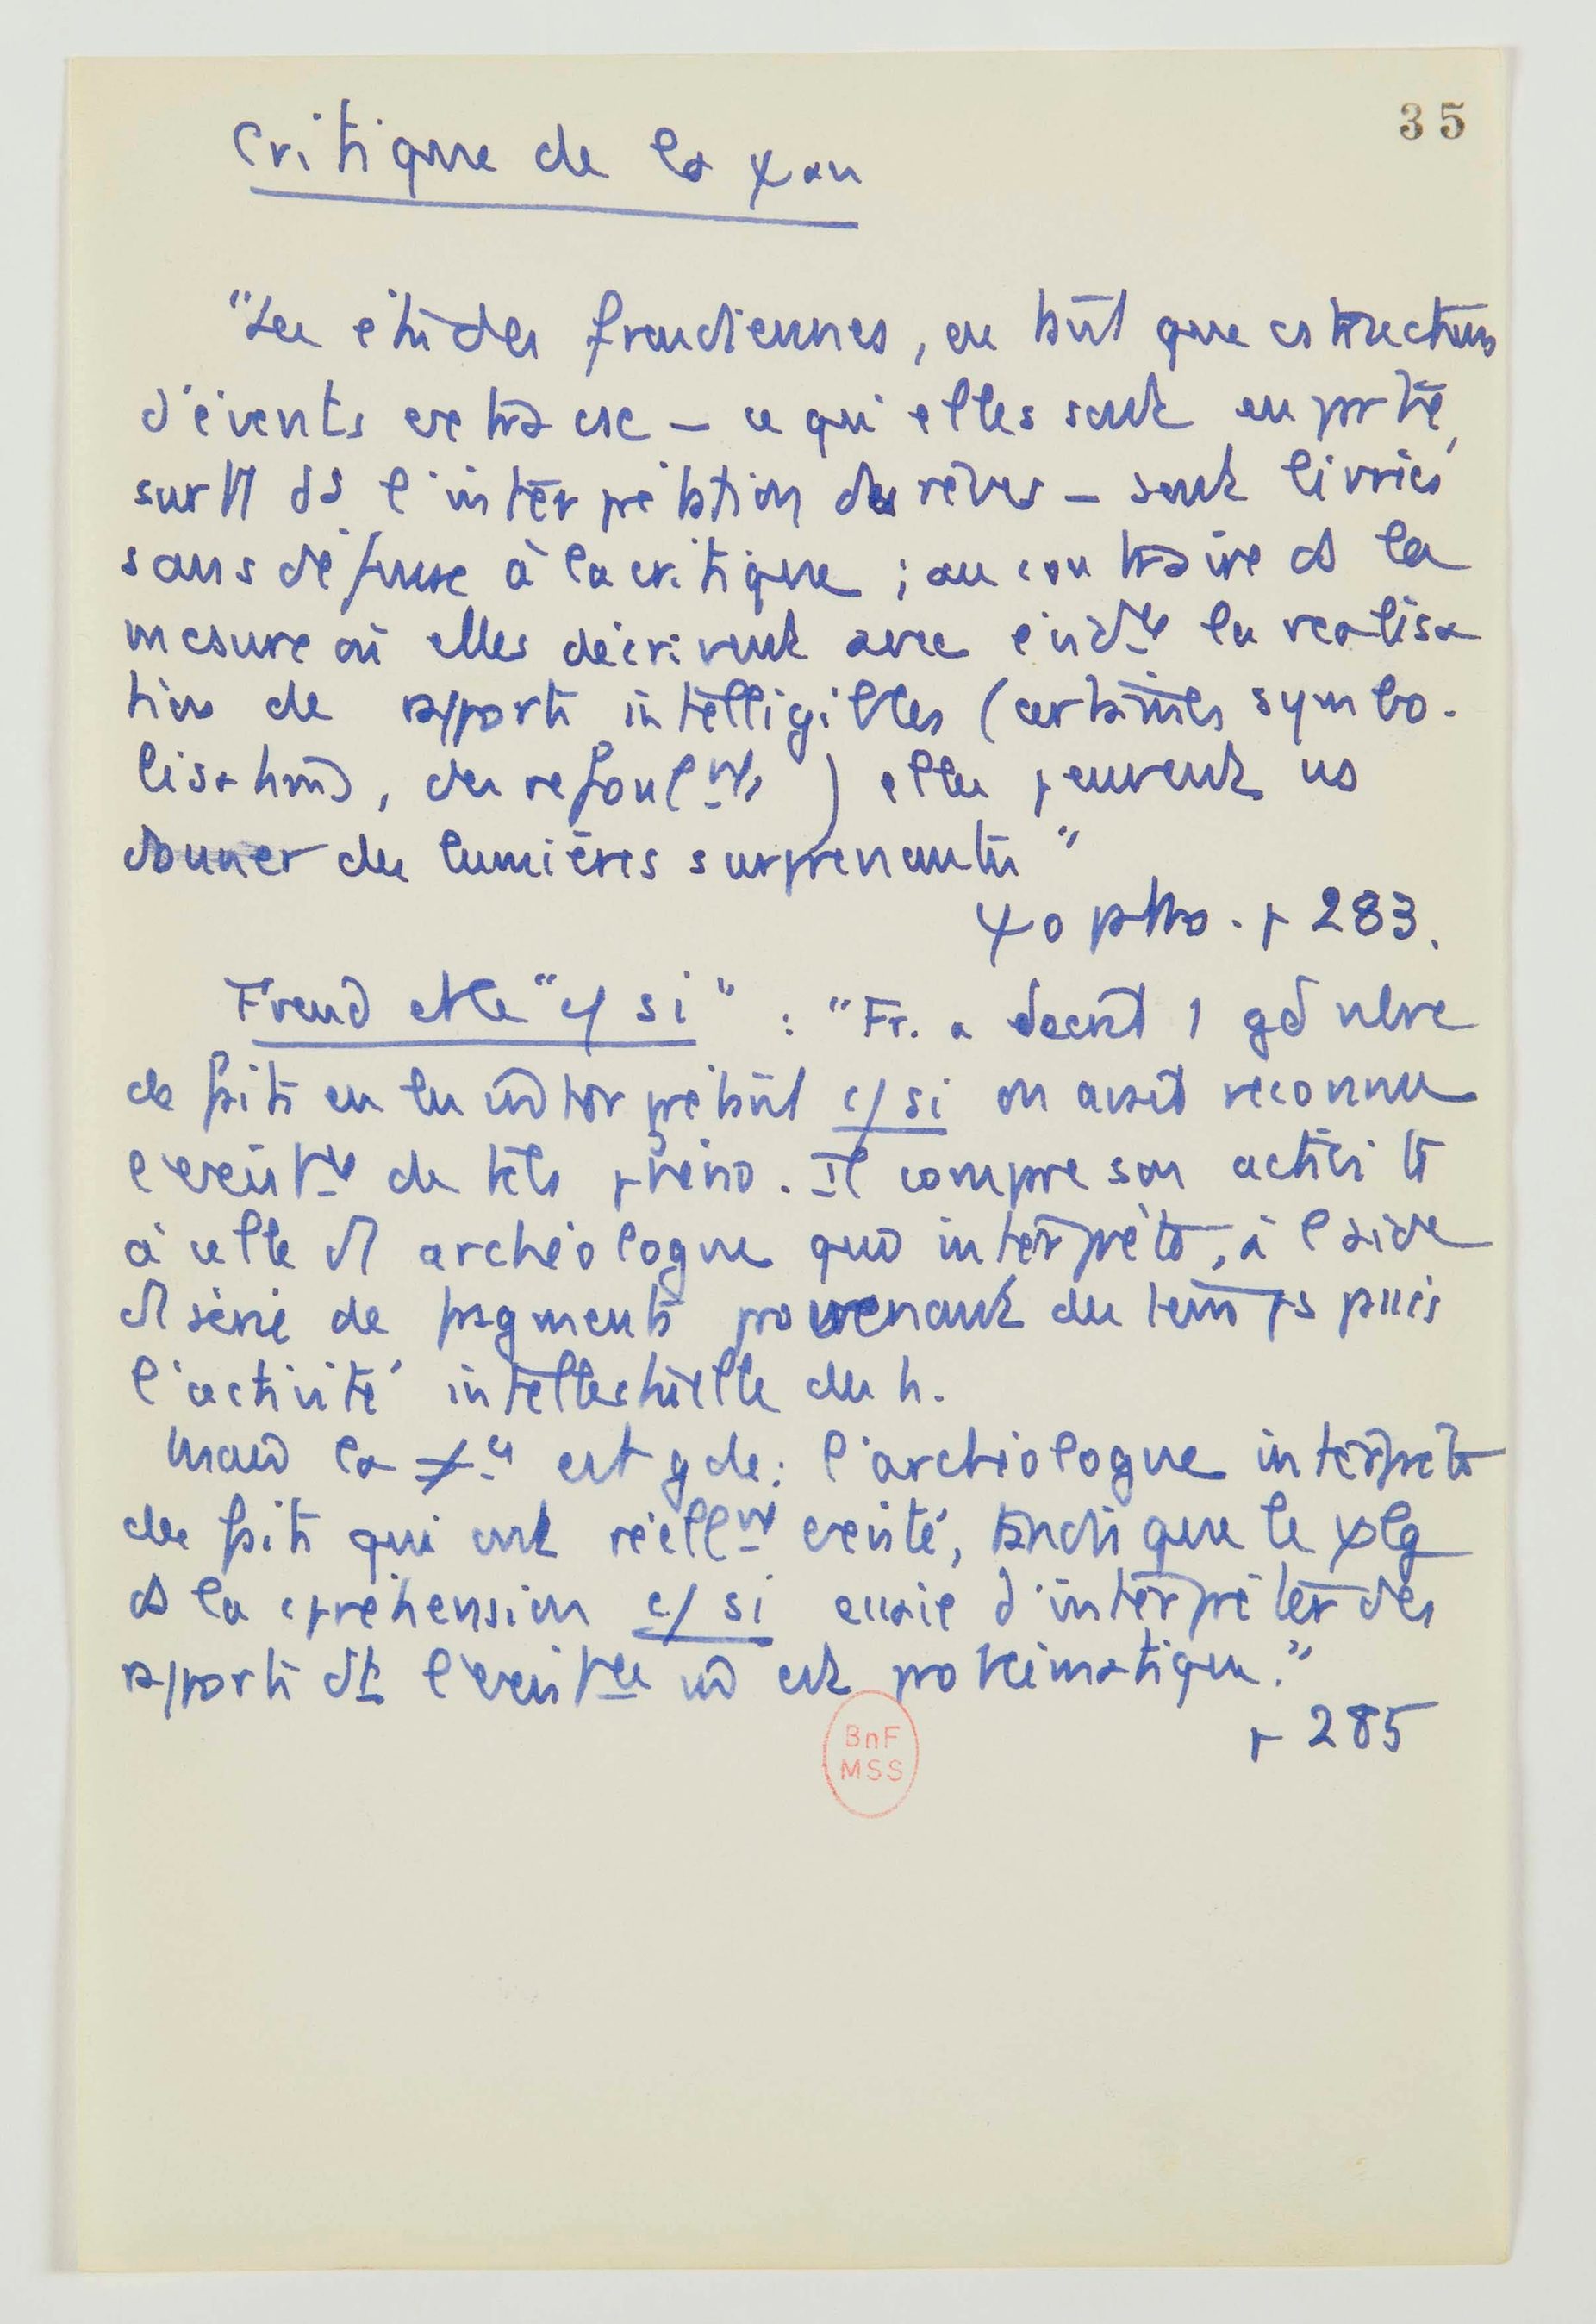 35
Critique de la ψan
"Les études freudiennes, en tant que constructions
d'évents extra csc – ce qu'elles sont en partie,
surtt ds l'interprétation des rêves – sont livrées
sans défense à la critique ; au contraire ds la
mesure où elles décrivent avec évidce la réalisa
tion de rapports intelligibles (certaines symbo-
lisations, des refoulmts) elles peuvent ns
donner des lumières surprenantes"
ψo patho. p 283.
Freud et le "c/ si" : "Fr. a décrit 1 gd nbre
de faits en les interprétant c/ si on avait reconnu
l'existce de tels phéno. Il compare son activité
à celle d'1 archéologue qui interprète, à l'aide
d'1 série de fragments provenant du temps passé
l'activité intellectuelle des h.
Mais la ≠ce est gde : l'archéologue interprète
des faits qui ont réellmt existé, tandis que le ψlg
ds la cpréhension c/ si essaie d'interpréter des
rapports dt l'existce est problématique."
p 285
BnF
MSS